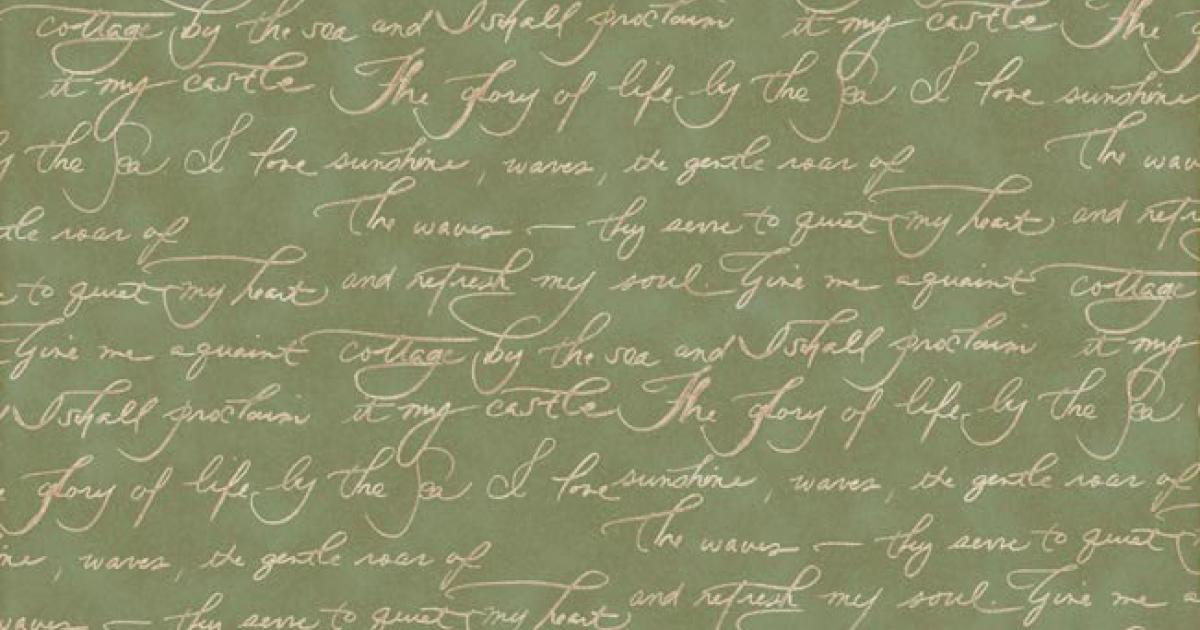 cottage by the sea and I shall proclaim it my castle The g
it my castle The glory of life by the Sea I love sunshine
y the Sea I love sunshine, waves, the gentle roar of The wav
tle roar of The waves — they serve to quiet my heart and refr
to quiet my heart and refresh my soul. Give me a quaint cottage
Give me a quaint cottage by the sea and I shall proclaim it my
I shall proclaim it my castle The glory of life by the Sea
glory of life by the Sea I love sunshine, waves, the gentle roar of
ne, waves, the gentle roar of The waves — they serve to quiet
waves — they serve to quiet my heart and refresh my soul. Give me a